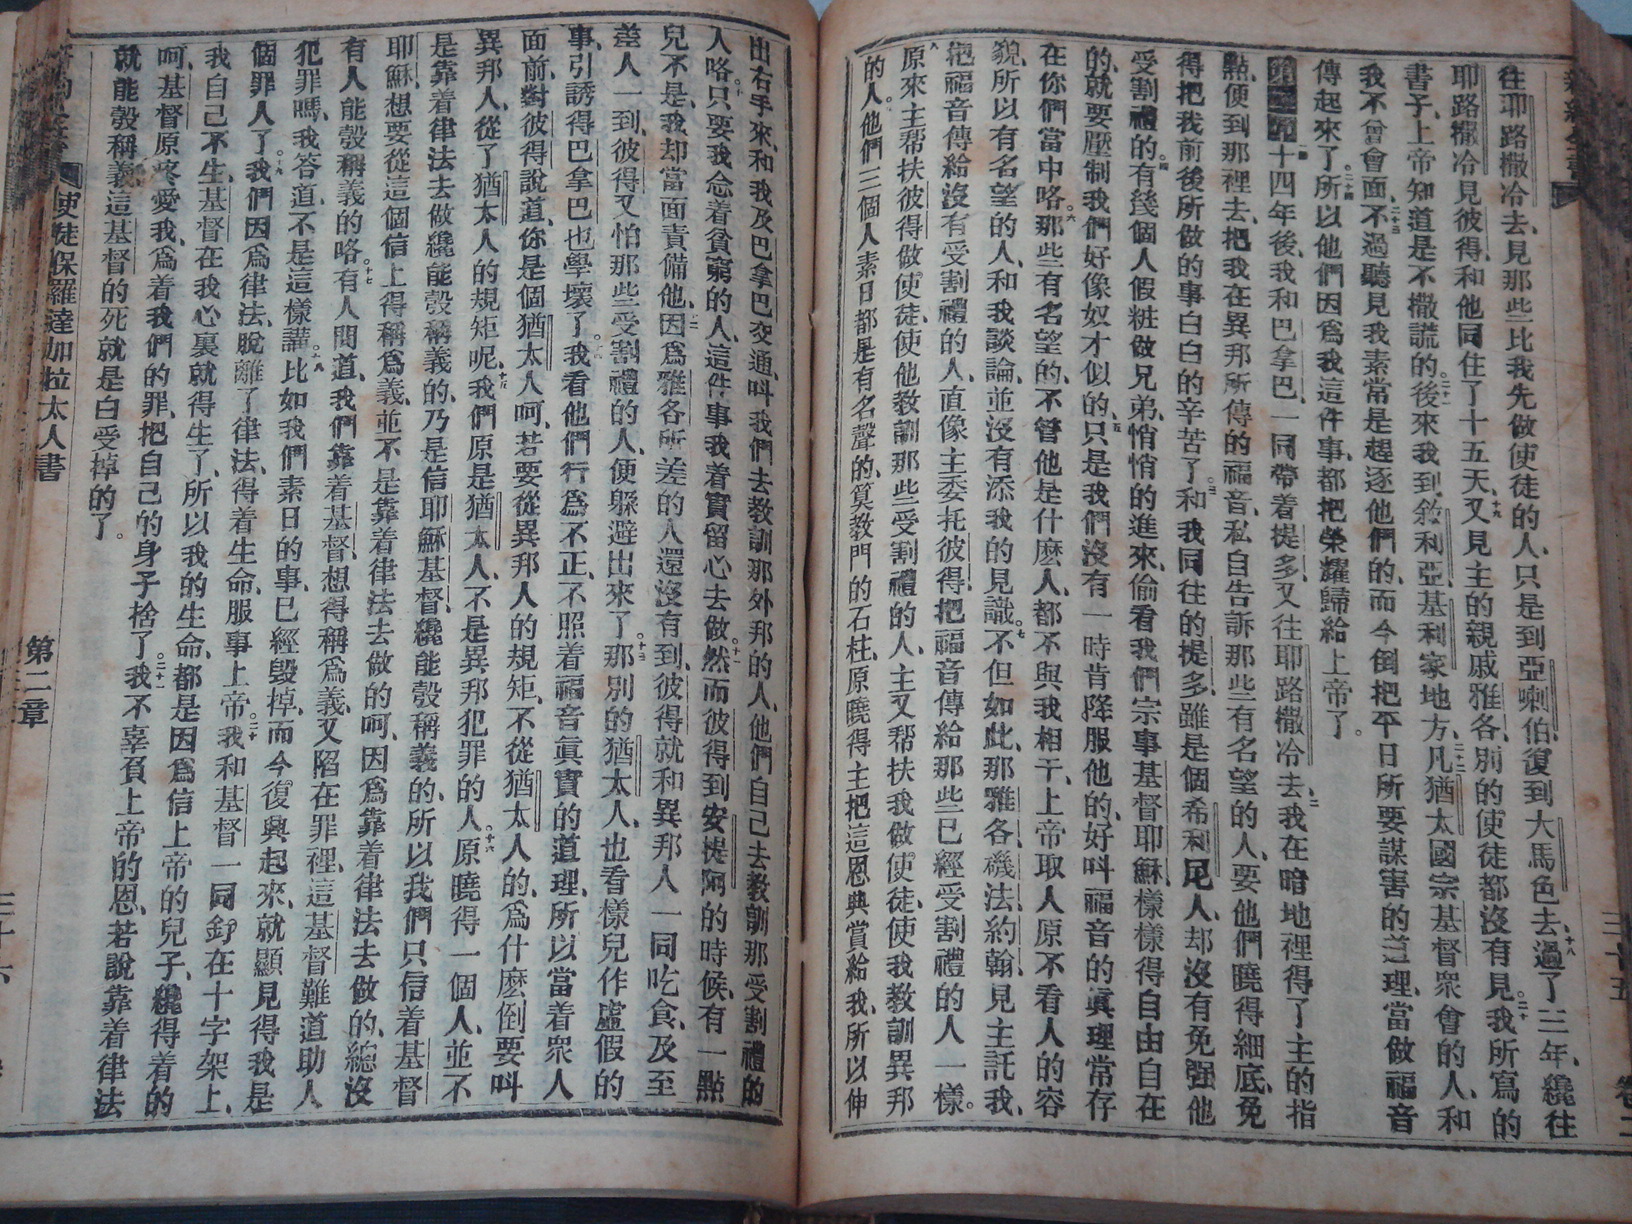 新約全書
三十五
往耶路撒冷去、見那些比我先做使徒的人、只是到亞喇伯、復到大馬色去、十八過了三年、纔往
耶路撒冷見彼得、和他同住了十五天、十九又見主的親戚雅各、別的使徒都沒有見。二十我所寫的
書子、上帝知道是不撒謊的。二十一後來我到敘利亞、基利家地方、二十二凡猶太國宗基督衆會的人、和
我不曾會面、二十三不過聽見我素常是趕逐他們的、而今倒把平日所要謀害的道理、當做福音
傳起來了。二十四所以他們因爲我這件事、都把榮耀歸給上帝了。
第二章一十四年後、我和巴拿巴、一同帶着提多、又往耶路撒冷去、二我在暗地裡得了主的指
點、便到那裡去、把我在異邦所傳的福音、私自告訴那些有名望的人、要他們曉得細底、免
得把我前後所做的事白白的辛苦了。三和我同往的提多、雖是個希利尼人、却沒有免强他
受割禮的、四有幾個人假粧做兄弟、悄悄的進來、偷看我們宗事基督耶穌、樣樣得自由自在
的、就要壓制我們好像奴才似的、五只是我們沒有一時肯降服他的、好叫福音的眞理常存
在你們當中咯。六那些有名望的、不管他是什麽人、都不與我相干、上帝取人原不看人的容
貌、所以有名望的人、和我談論、並沒有添我的見識、七不但如此、那雅各、磯法、約翰、見主託我、
把福音傳給沒有受割禮的人、直像主委托彼得、把福音傳給那些已經受割禮的人一樣。
八原來主帮扶彼得做使徒、使他教訓那些受割禮的人、主又帮扶我做使徒、使我教訓異邦
的人、九他們三個人素日都是有名聲的、算教門的石柱、原曉得主把這恩典賞給我、所以伸
出右手來、和我及巴拿巴交通、叫我們去教訓那外邦的人、他們自己去教訓那受割禮的
人咯、十只要我念着貧窮的人、這件事我着實留心去做、十一然而彼得到安提阿的時候、有一點
兒不是、我却當面責備他、十二因爲雅各所差的人還沒有到、彼得就和異邦人一同吃食、及至
差人一到、彼得又怕那些受割禮的人、便躲避出來了、十三那別的猶太人、也看樣兒作虛假的
事、引誘得巴拿巴也學壞了、十四我看他們行爲不正、不照着福音眞實的道理、所以當着衆人
面前、對彼得說道、你是個猶太人呵、若要從異邦人的規矩、不從猶太人的、爲什麽倒要叫
異邦人、從了猶太人的規矩呢、十五我們原是猶太人、不是異邦犯罪的人、十六原曉得一個人、並不
是靠着律法去做纔能彀稱義的、乃是信耶穌基督、纔能彀稱義的、所以我們只信着基督
耶穌、想要從這個信上得稱爲義、並不是靠着律法去做的呵、因爲靠着律法去做的、總沒
有人能彀稱義的咯。十七有人問道、我們靠着基督、想得稱爲義、又陷在罪裡、這基督難道助人
犯罪嗎、我答道、不是這樣講、十八比如我們素日的事、已經毀掉、而今復興起來、就顯見得我是
個罪人了。十九我們因爲律法、脫離了律法、得着生命、服事上帝、二十我和基督一同釘在十字架上、
我自己不生、基督在我心裏就得生了、所以我的生命、都是因爲信上帝的兒子、纔得着的
呵、基督原疼愛我、爲着我們的罪、把自己的身子捨了。二十一我不辜負上帝的恩、若說靠着律法
就能彀稱義、這基督的死、就是白受掉的了。
使徒保羅達加拉太人書
第二章
三十六